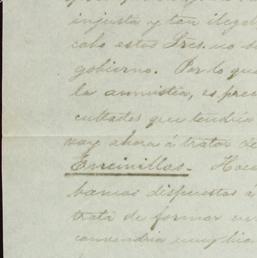 injusta y tan ilegal
cabo estos Sres. no s
gobierno. Por lo qu
la amnistía, es prec
cultades que tendria
voy ahora á tratar de
Encinillas. Hac
bamos dispuestos á
trati de formar un
convendria muy bie